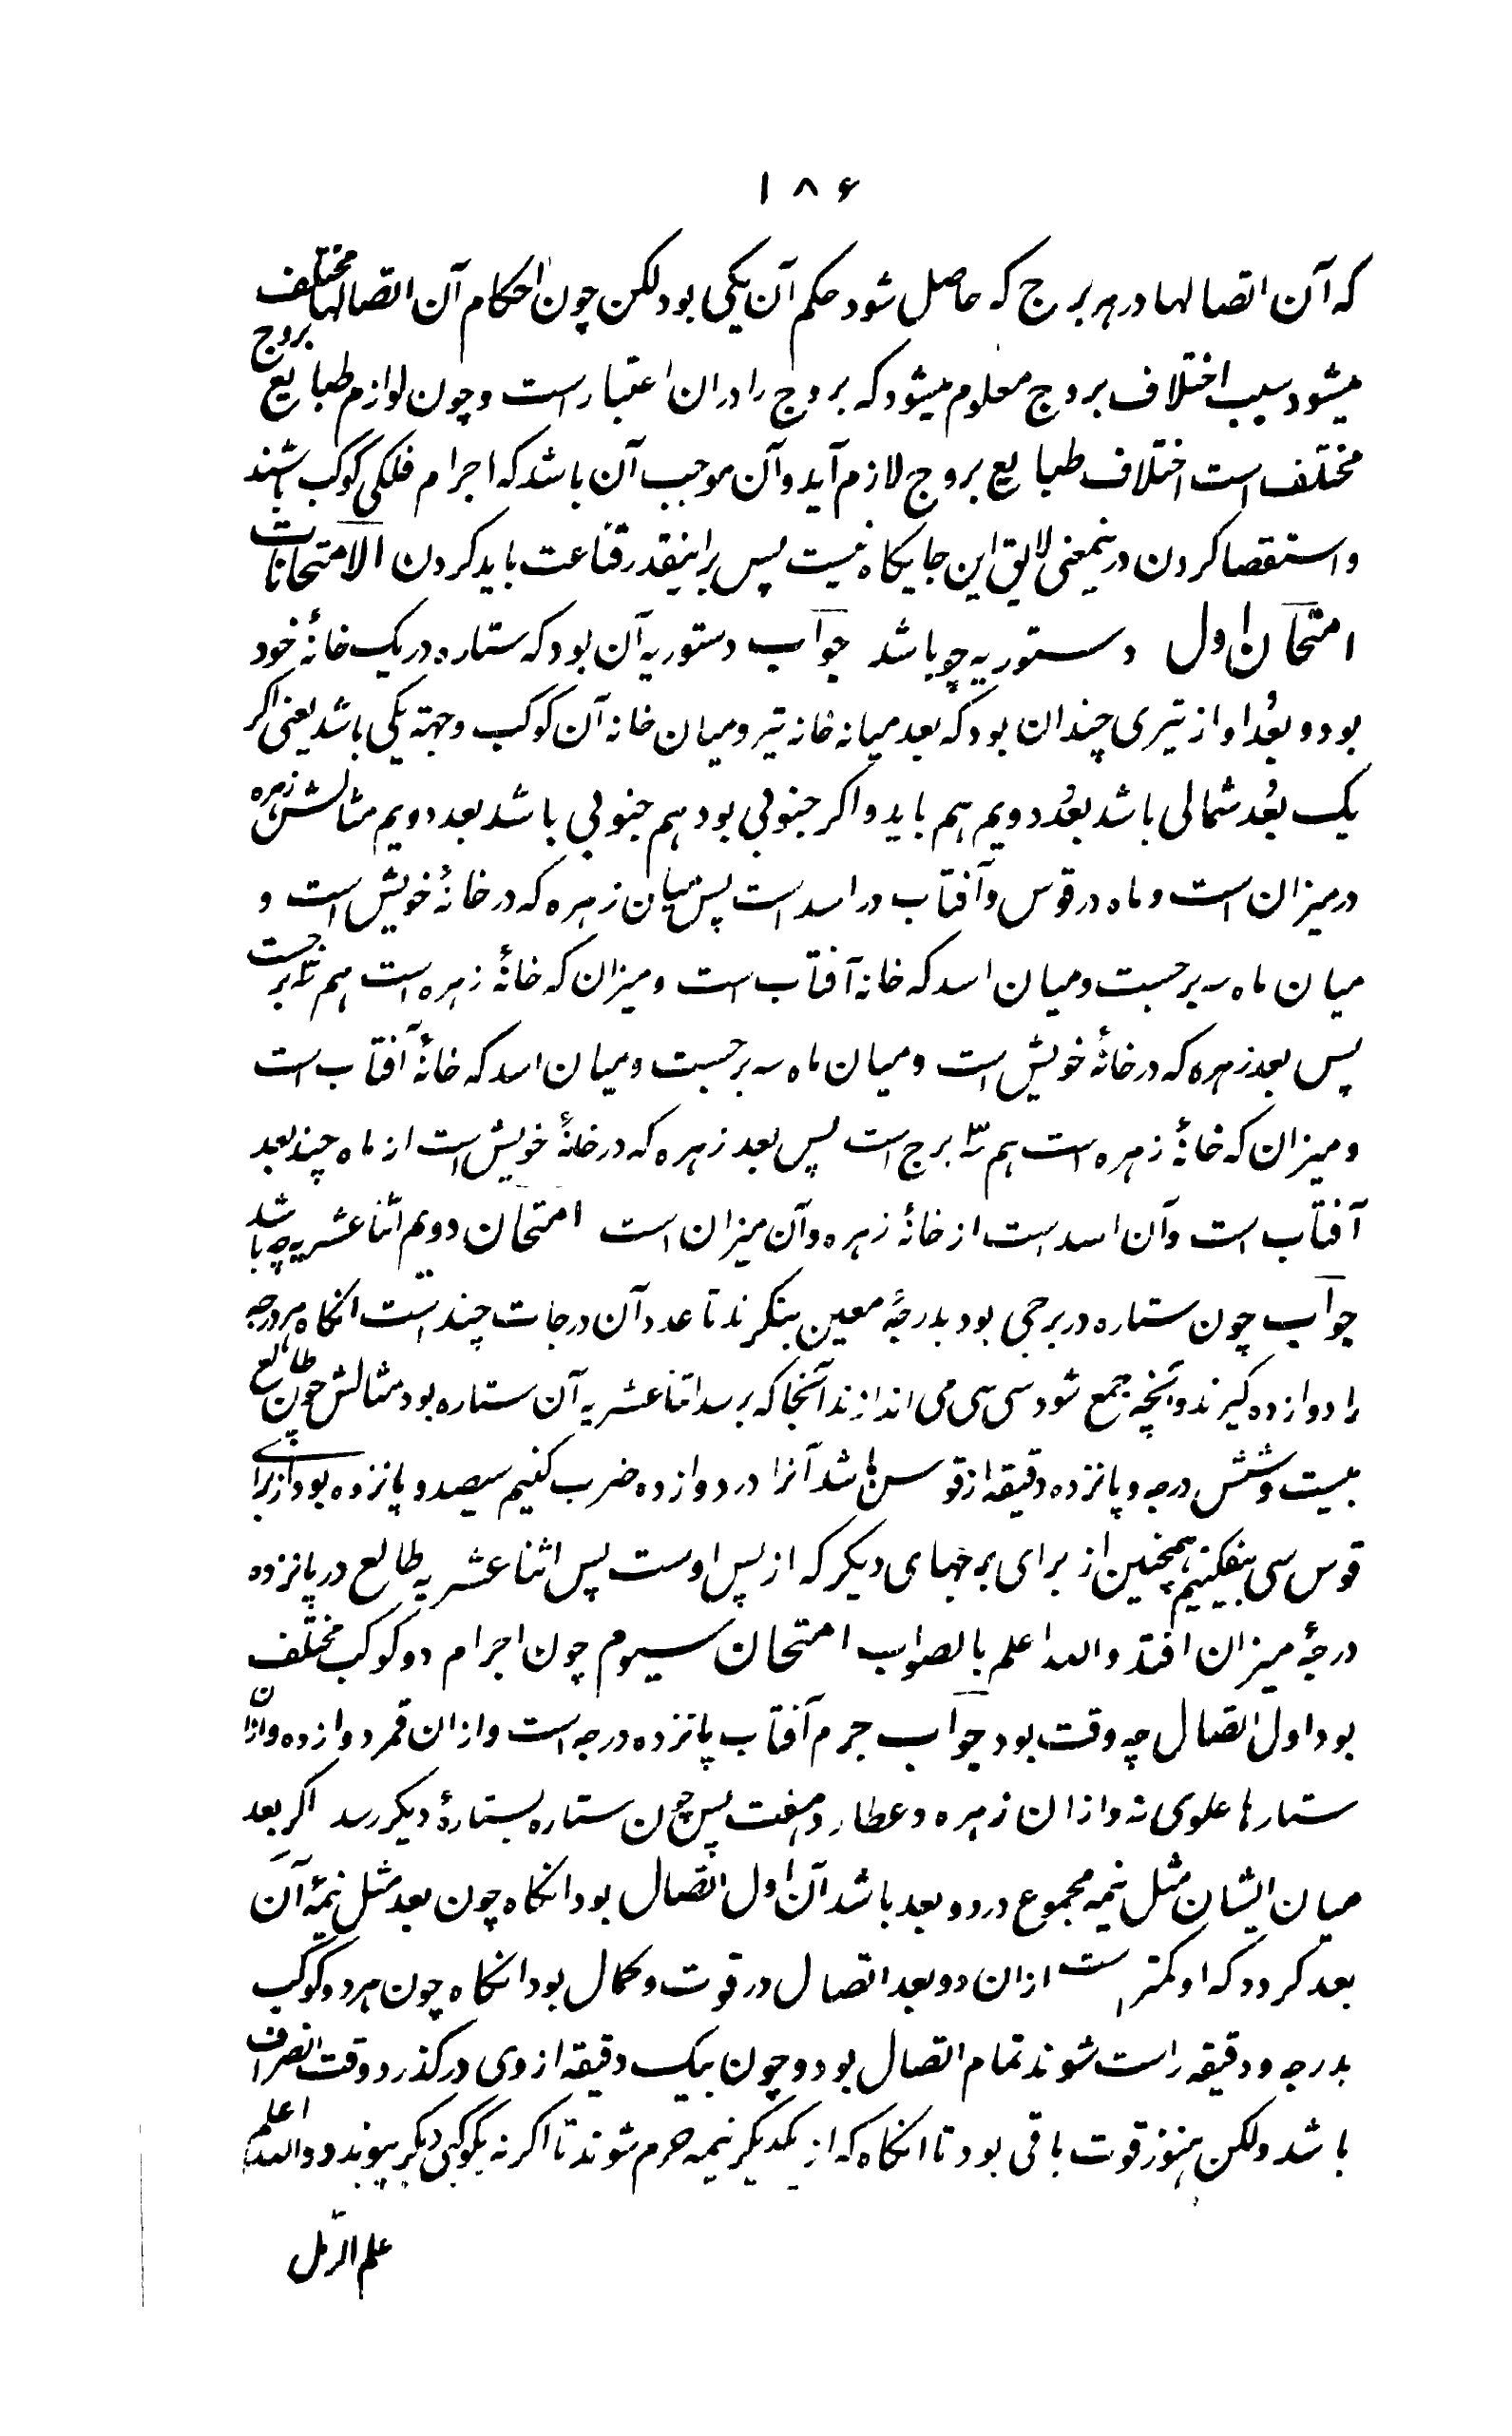 ۱۸۶
که آن اتصالها در هر برج که حاصل شود حکم آن یکی بود لکن چون احکام آن اتصالها مختلف
میشود سبب اختلاف بروج معلوم میشود که بروج را دران اعتبار است و چون لوازم طبایع بروج
مختلف است اختلاف طبایع بروج لازم آید و آن موجب آن باشد که اجرام فلکی کوکب باشند
و استقصا کردن درینمعنی لایق این جایکاه نیست پس براینقدر قناعت باید کردن الامتحانات
امتحان اول دستوریه چه باشد جواب دستوریه آن بود که ستاره در یک خانۀ خود
بود و بُعد او از تیری چندان بود که بعد میانه خانه تیر و میان خانه آن کوکب وجهته یکی باشد یعنی اکر
یک بُعد شمالی باشد بعُد دویم هم باید و اکر جنوبی بود هم جنوبی باشد بعد دویم مثالش زهره
در میزان است و ماه در قوس و آفتاب در اسد است پس میان زهره که در خانۀ خویش است و
میان ماه سه برجست و میان اسد که خانه آفتاب است و میزان که خانۀ زهره است هم سه برجست
پس بعد زهره که در خانۀ خویش است و میان ماه سه برجست و میان اسد که خانۀ آفتاب است
و میزان که خانۀ زهره است هم سه برج است پس بعد زهره که در خانۀ خویش است از ماه چند بعد
آفتاب است و آن اسد است از خانۀ زهره و آن میزان است امتحان دویم اثنا عشریه چه باشد
جواب چون ستاره در برجی بود بدرجۀ معین بنکرند تا عدد آن درجات چند است انکاه هر درجه
را دوازده کیرند و آنچه جمع شود سی سی می اندازند آنجا که برسد اثنا عشریه آن ستاره بود مثالش چون طالع
بیست و شش درجه و پانزده دقیقه از قوس باشد آنرا در دوازده ضرب کنیم سیصد و پانزده بود از برای
قوس سی بیفکنیم همچنین از برای برجهای دیکر که از پس اوست پس اثنا عشریه طالع در پانزده
درجۀ میزان افتد والله اعلم بالصواب امتحان سیوم چون اجرام دو کوکب مختلف
بود اول اتصال چه وقت بود جواب جرم آفتاب پانزده درجه است و ازان قمر دوازده و ازان
ستارها علوی نه و ازان زهره و عطارد هفت پس چون ستاره بستارۀ دیکر رسد اکر بعد
میان ایشان مثل نیمه مجموع در دو بعد باشد آن اول اتصال بود انکاه چون بعد مثل نیمۀ آن
بعد کردد که او کمتر است ازان دو بعد اتصال در قوت و کمال بود انکاه چون هر دو کوکب
بدرجه و دقیقه راست شوند تمام اتصال بود و چون بیک دقیقه از وی درکذرد وقت انصراف
باشد ولکن هنوز قوت باقی بود تا انکاه که از یکدیکر نیمه جرم شوند تا اکر نه بکوکبی دیکر پیوندد والله اعلم
علم الرّمل